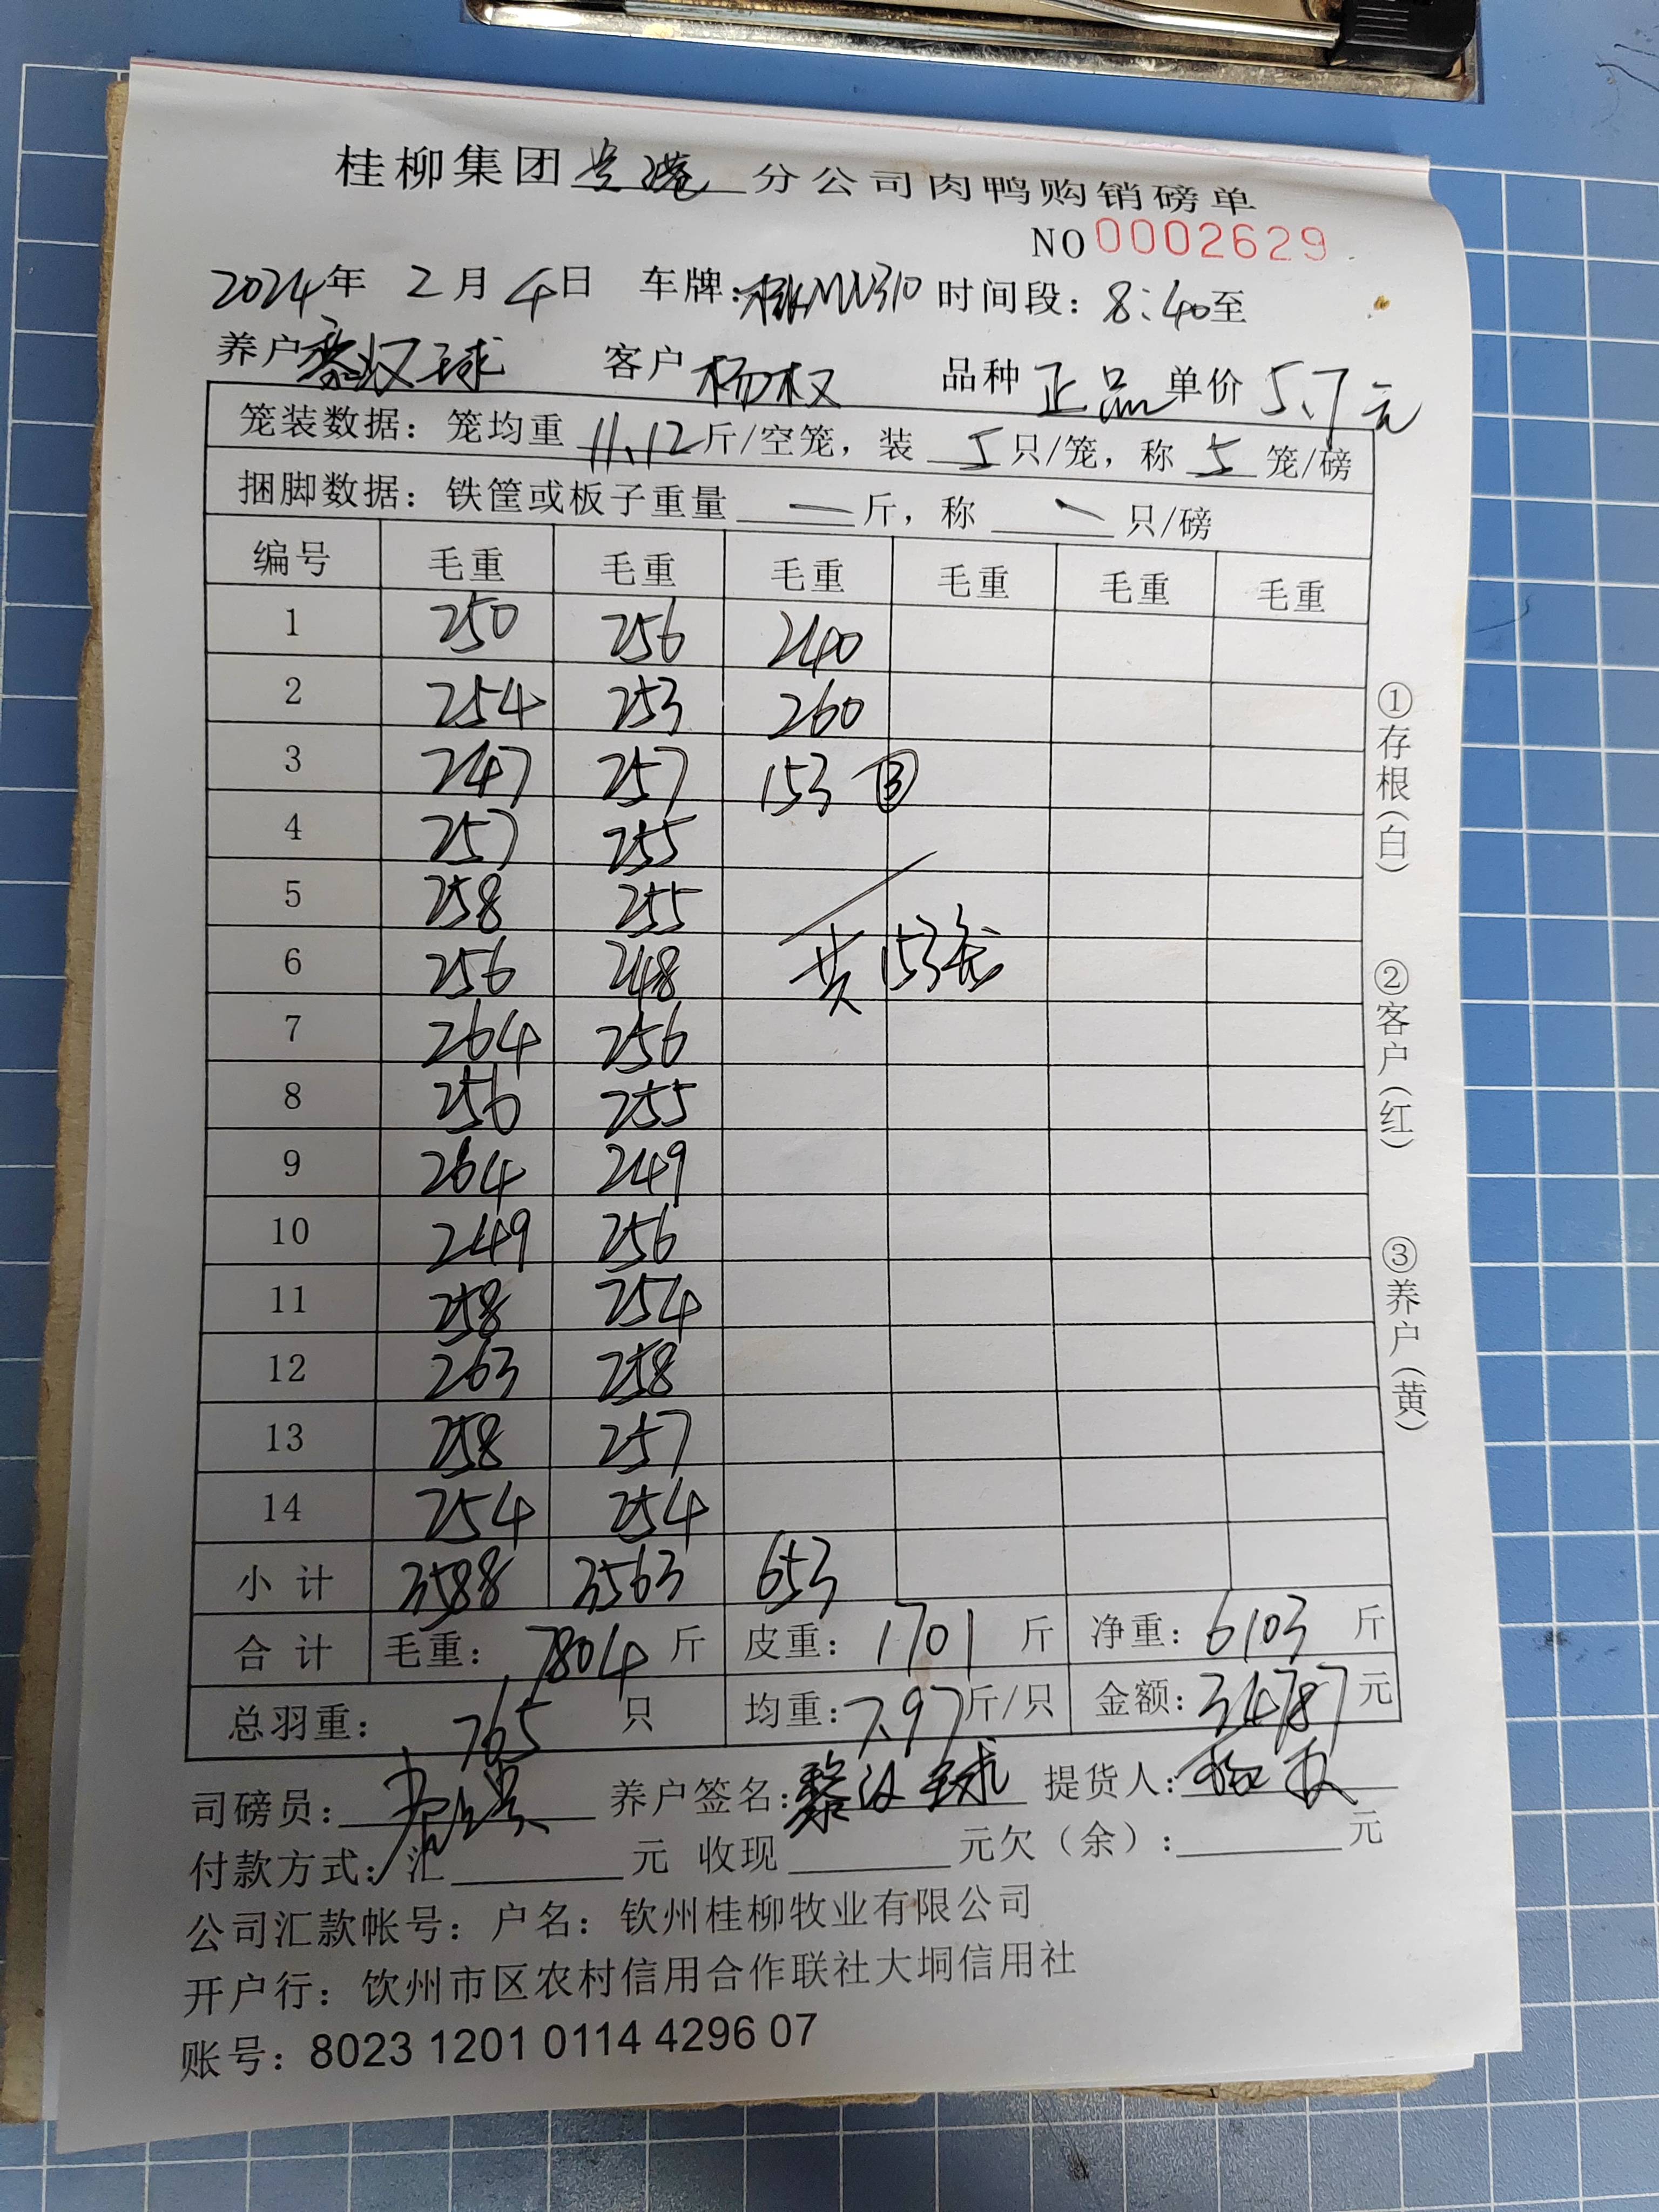 桂柳集团贵港分公司肉鸭购销磅单
NO 0002629
2024年 2月 4日 车牌: 时间段: 8:40至
养户黎汉球 客户 杨权 品种 正品 单价 5.7元
笼装数据: 笼均重 11.12 斤/空笼, 装 5 只/笼, 称 5 笼/磅
捆脚数据: 铁筐或板子重量 — 斤, 称 — 只/磅
编号 毛重 毛重 毛重 毛重 毛重 毛重
1 250 256 240
2 254 253 260
3 247 257 153 ③
4 257 255
5 258 255
6 256 248 共153笼
7 264 256
8 256 255
9 264 249
10 249 256
11 258 254
12 263 258
13 258 257
14 254 254
小计 3588 3563 653
合计 毛重: 7804 斤 皮重: 1701 斤 净重: 6103 斤
总羽重: 765 只 均重: 7.97 斤/只 金额: 34787 元
司磅员: 养户签名: 黎汉球 提货人: 杨权
付款方式: 汇 元 收现 元欠(余): 元
公司汇款帐号: 户名: 钦州桂柳牧业有限公司
开户行: 钦州市区农村信用合作联社大垌信用社
账号: 8023 1201 0114 4296 07
①存根(白)
②客户(红)
③养户(黄)